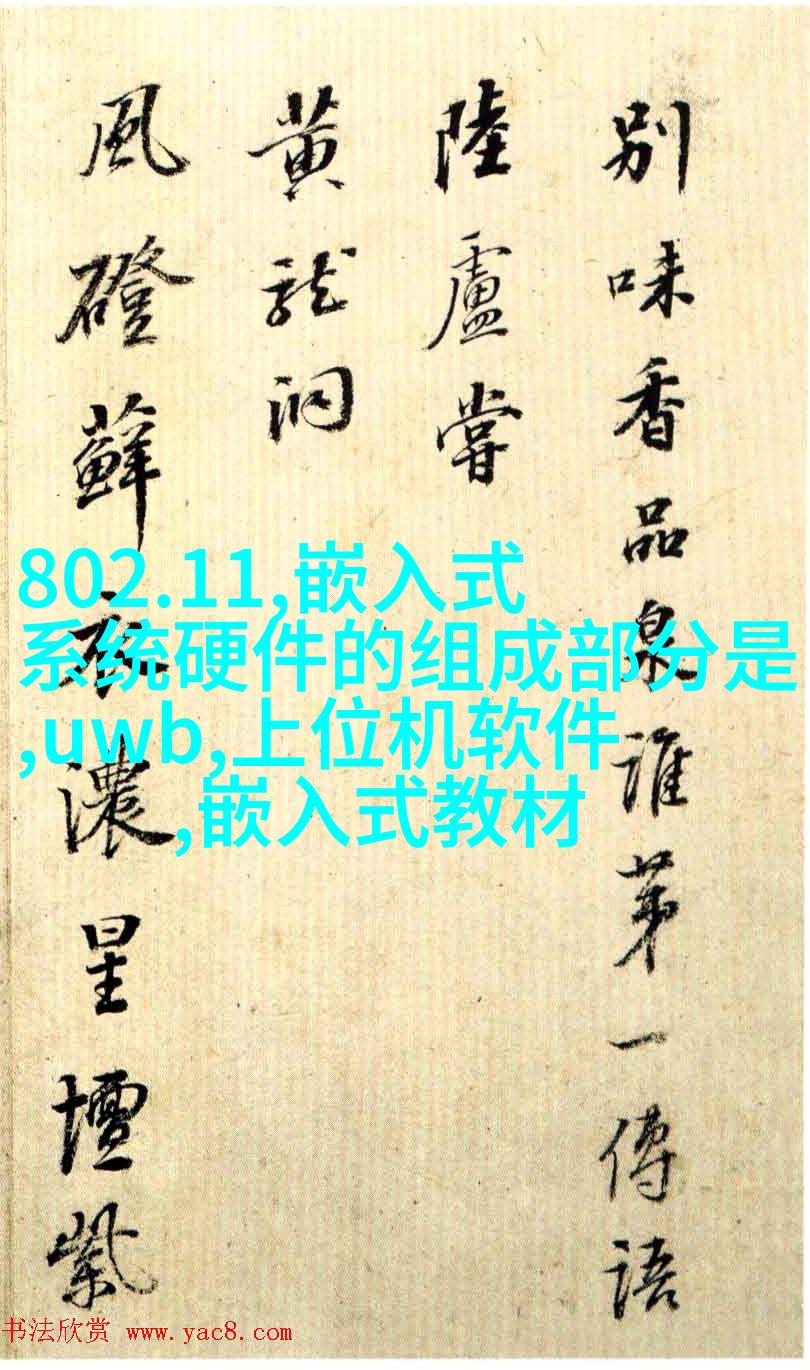 别味香品泉谁茅一傳語
陸盧嘗
黄龍洞
風磴蘚衣濃星壇紫
802.11,嵌入式
系统硬件的组成部分是
,uwb,上位机软件
,嵌入式教材
书法欣赏 www.yac8.com